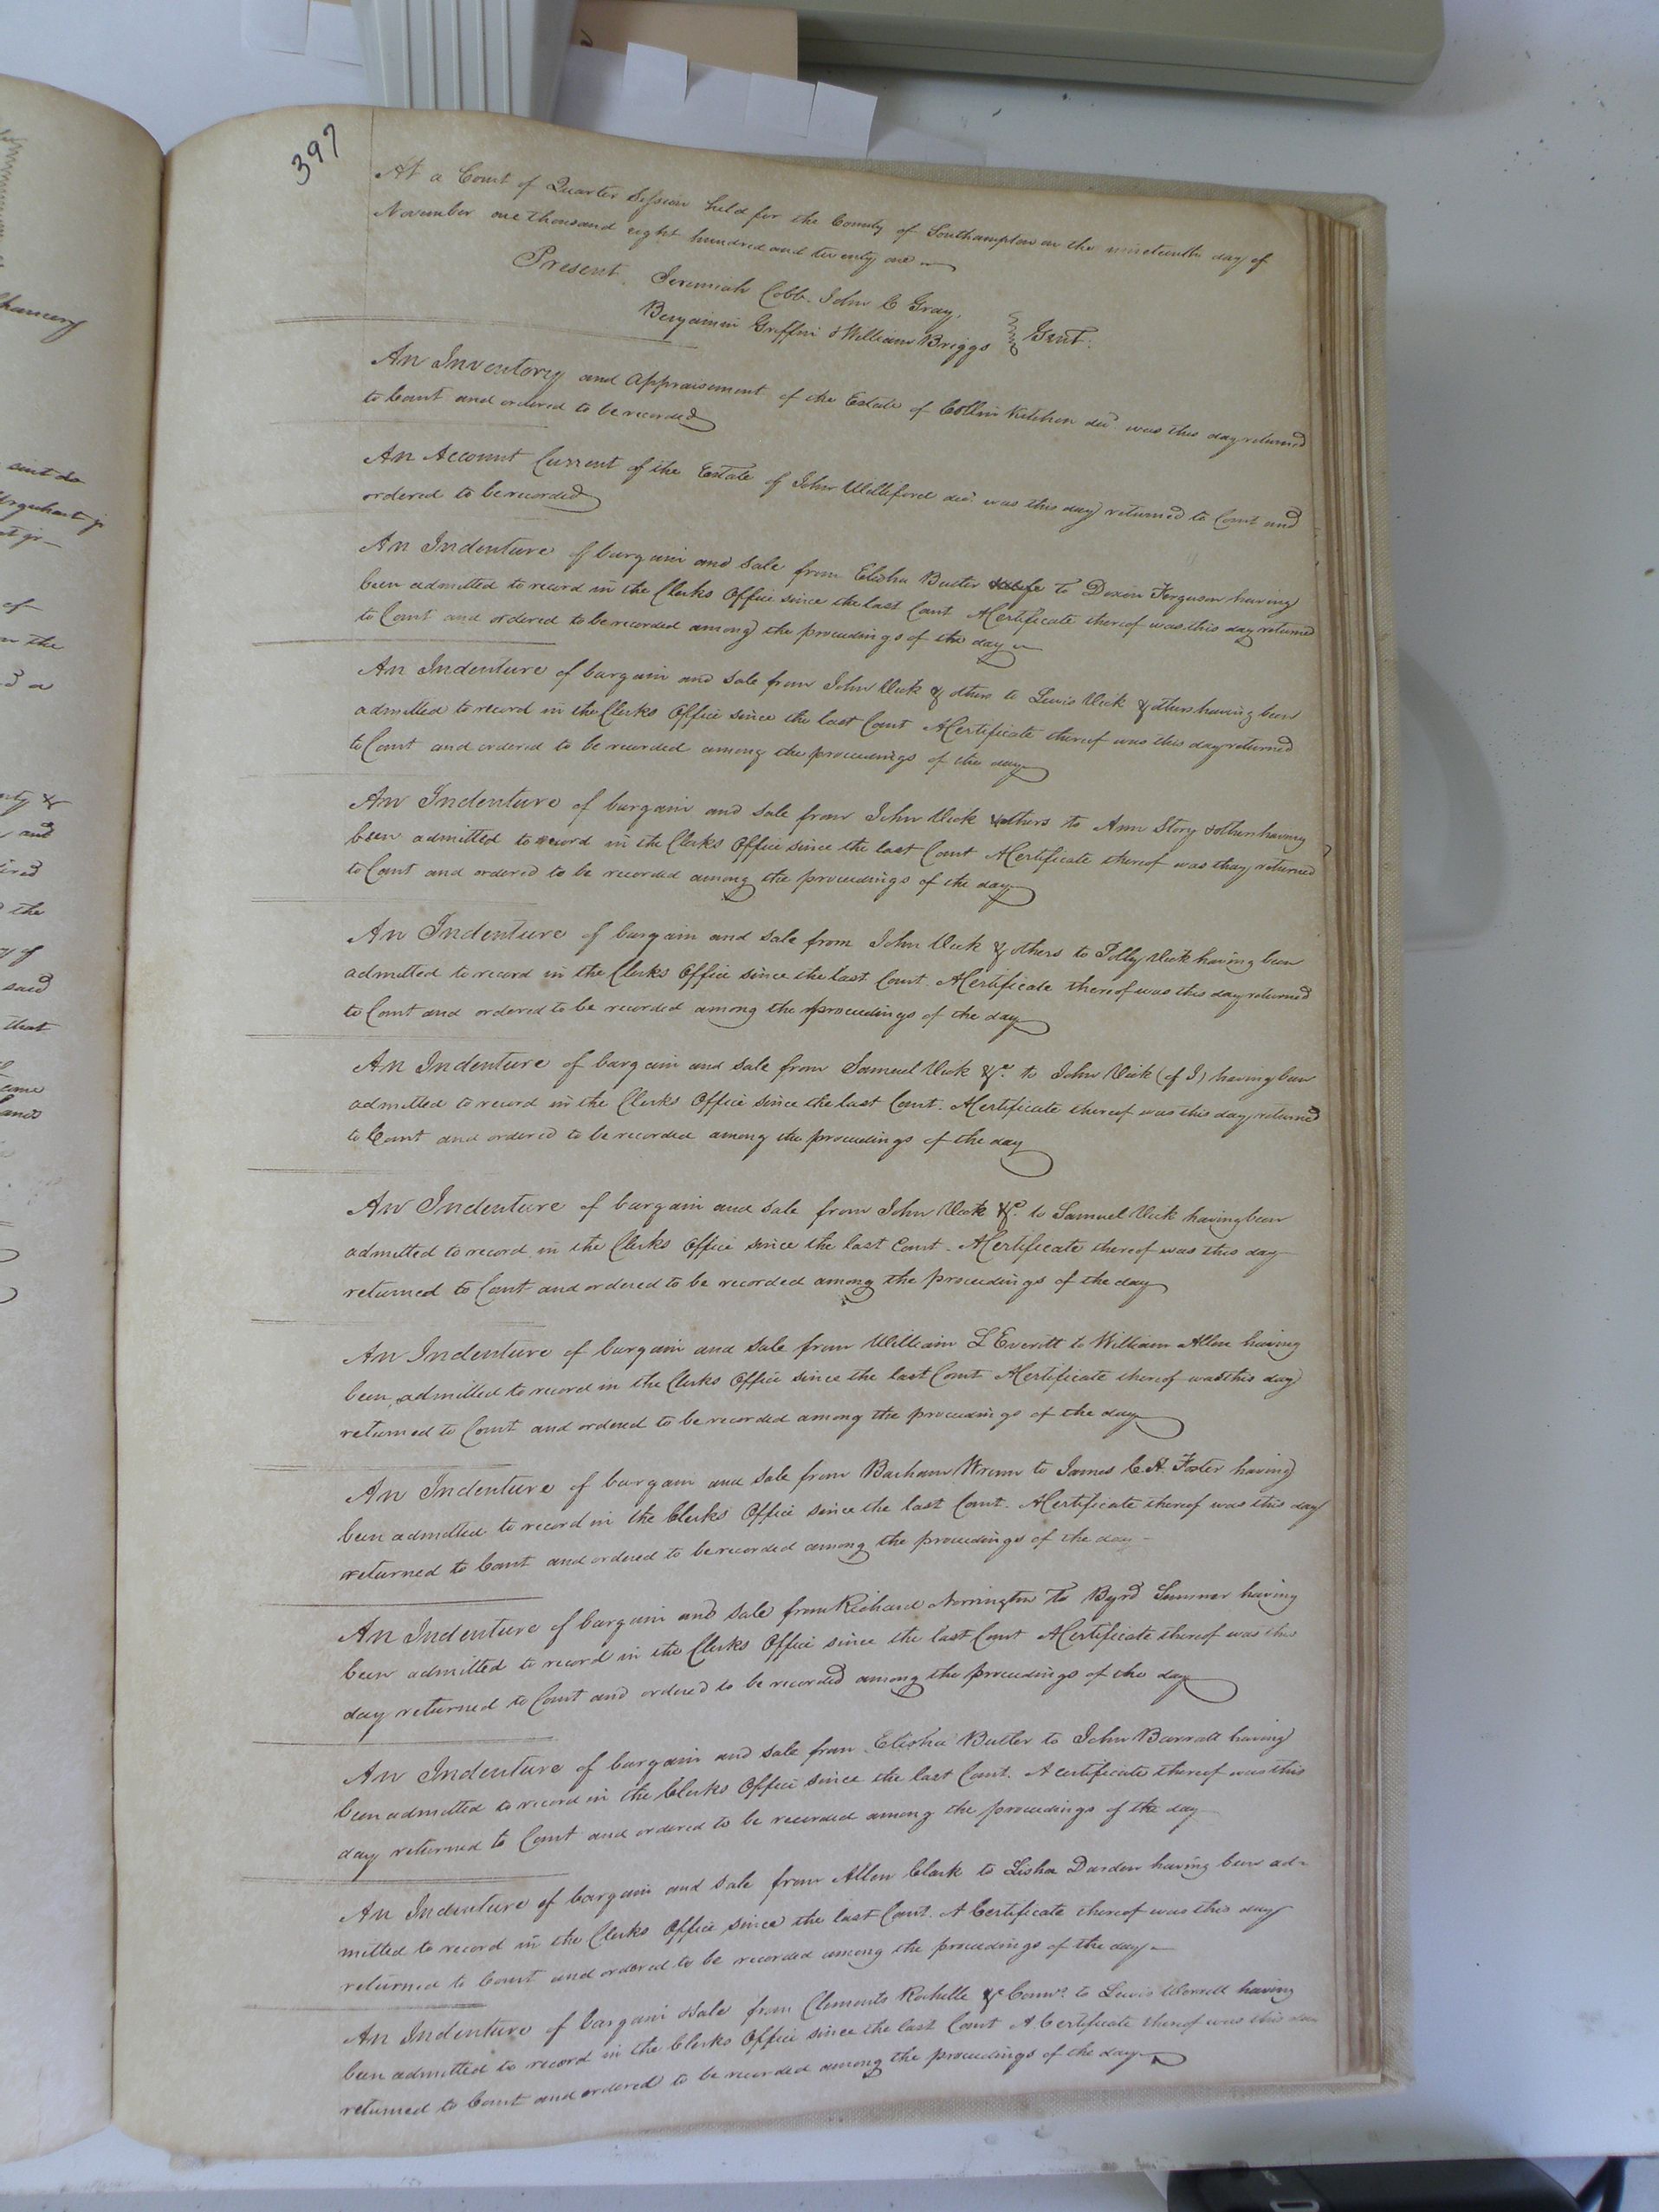 397
At a Court of Quarter Session held for the County of Southampton on the nineteenth day of
November one thousand eight hundred and twenty one
Present. Jeremiah Cobb. John C Gray,
Benjamin Griffin & William Briggs Gent.
An Inventory and Appraisement of the Estate of Collin Kitchen decd was this day returned
to Court and ordered to be recorded
An Account Current of the Estate of John Williford decd. was this day returned to Court and
ordered to be recorded
An Indenture of bargain and sale from Elisha Butler & wife to Dixin Ferguson having
been admitted to record in the Clerks Office since the last Court A Certificate thereof was this day returned
to Court and ordered to be recorded among the proceedings of the day
An Indenture of bargain and sale from John Vick & others to Lewis Vick & others having been
admitted to record in the Clerks Office since the last Court A Certificate thereof was this day returned
to Court and ordered to be recorded among the proceedings of the day
An Indenture of bargain and sale from John Vick & others to Ann Story & others having
been admitted to record in the Clerks Office since the last Court A Certificate thereof was thay returned
to Court and ordered to be recorded among the proceedings of the day
An Indenture of bargain and sale from John Vick & others to Tolly Vick having been
admitted to record in the Clerks Office since the last Court. A Certificate thereof was this day returned
to Court and ordered to be recorded among the proceedings of the day
An Indenture of bargain and sale from Samuel Vick &c. to John Vick (of J) having been
admitted to record in the Clerks Office since the last Court. A Certificate thereof was this day returned
to Court and ordered to be recorded among the proceedings of the day
An Indenture of bargain and sale from John Vick &c. to Samuel Vick having been
admitted to record in the Clerks Office since the last Court. A Certificate thereof was this day
returned to Court and ordered to be recorded among the proceedings of the day
An Indenture of bargain and sale from William L Everitt to William Allen having
been admitted to record in the Clerks Office since the last Court A Certificate thereof was this day
returned to Court and ordered to be recorded among the proceedings of the day
An Indenture of bargain and sale from Barham Wrenn to James C. A. Foster having
been admitted to record in the Clerks Office since the last Court. A Certificate thereof was this day
returned to Court and ordered to be recorded among the proceedings of the day
An Indenture of bargain and sale from Richard Norrington to Byrd Sumner having
been admitted to record in the Clerks Office since the last Court A Certificate thereof was this
day returned to Court and ordered to be recorded among the proceedings of the day
An Indenture of bargain and sale from Elisha Butler to John Barratt having
been admitted to record in the Clerks Office since the last Court. A certificate thereof was this
day returned to Court and ordered to be recorded among the proceedings of the day
An Indenture of bargain and sale from Allen Clark to Lisha Darden having been ad-
mitted to record in the Clerks Office since the last Court. A Certificate thereof was this day
returned to Court and ordered to be recorded among the proceedings of the day
An Indenture of bargain & sale from Clements Rochelle & Comrs. to Lewis Worrell having
been admitted to record in the Clerks Office since the last Court A Certificate thereof was this day
returned to Court and ordered to be recorded among the proceedings of the day